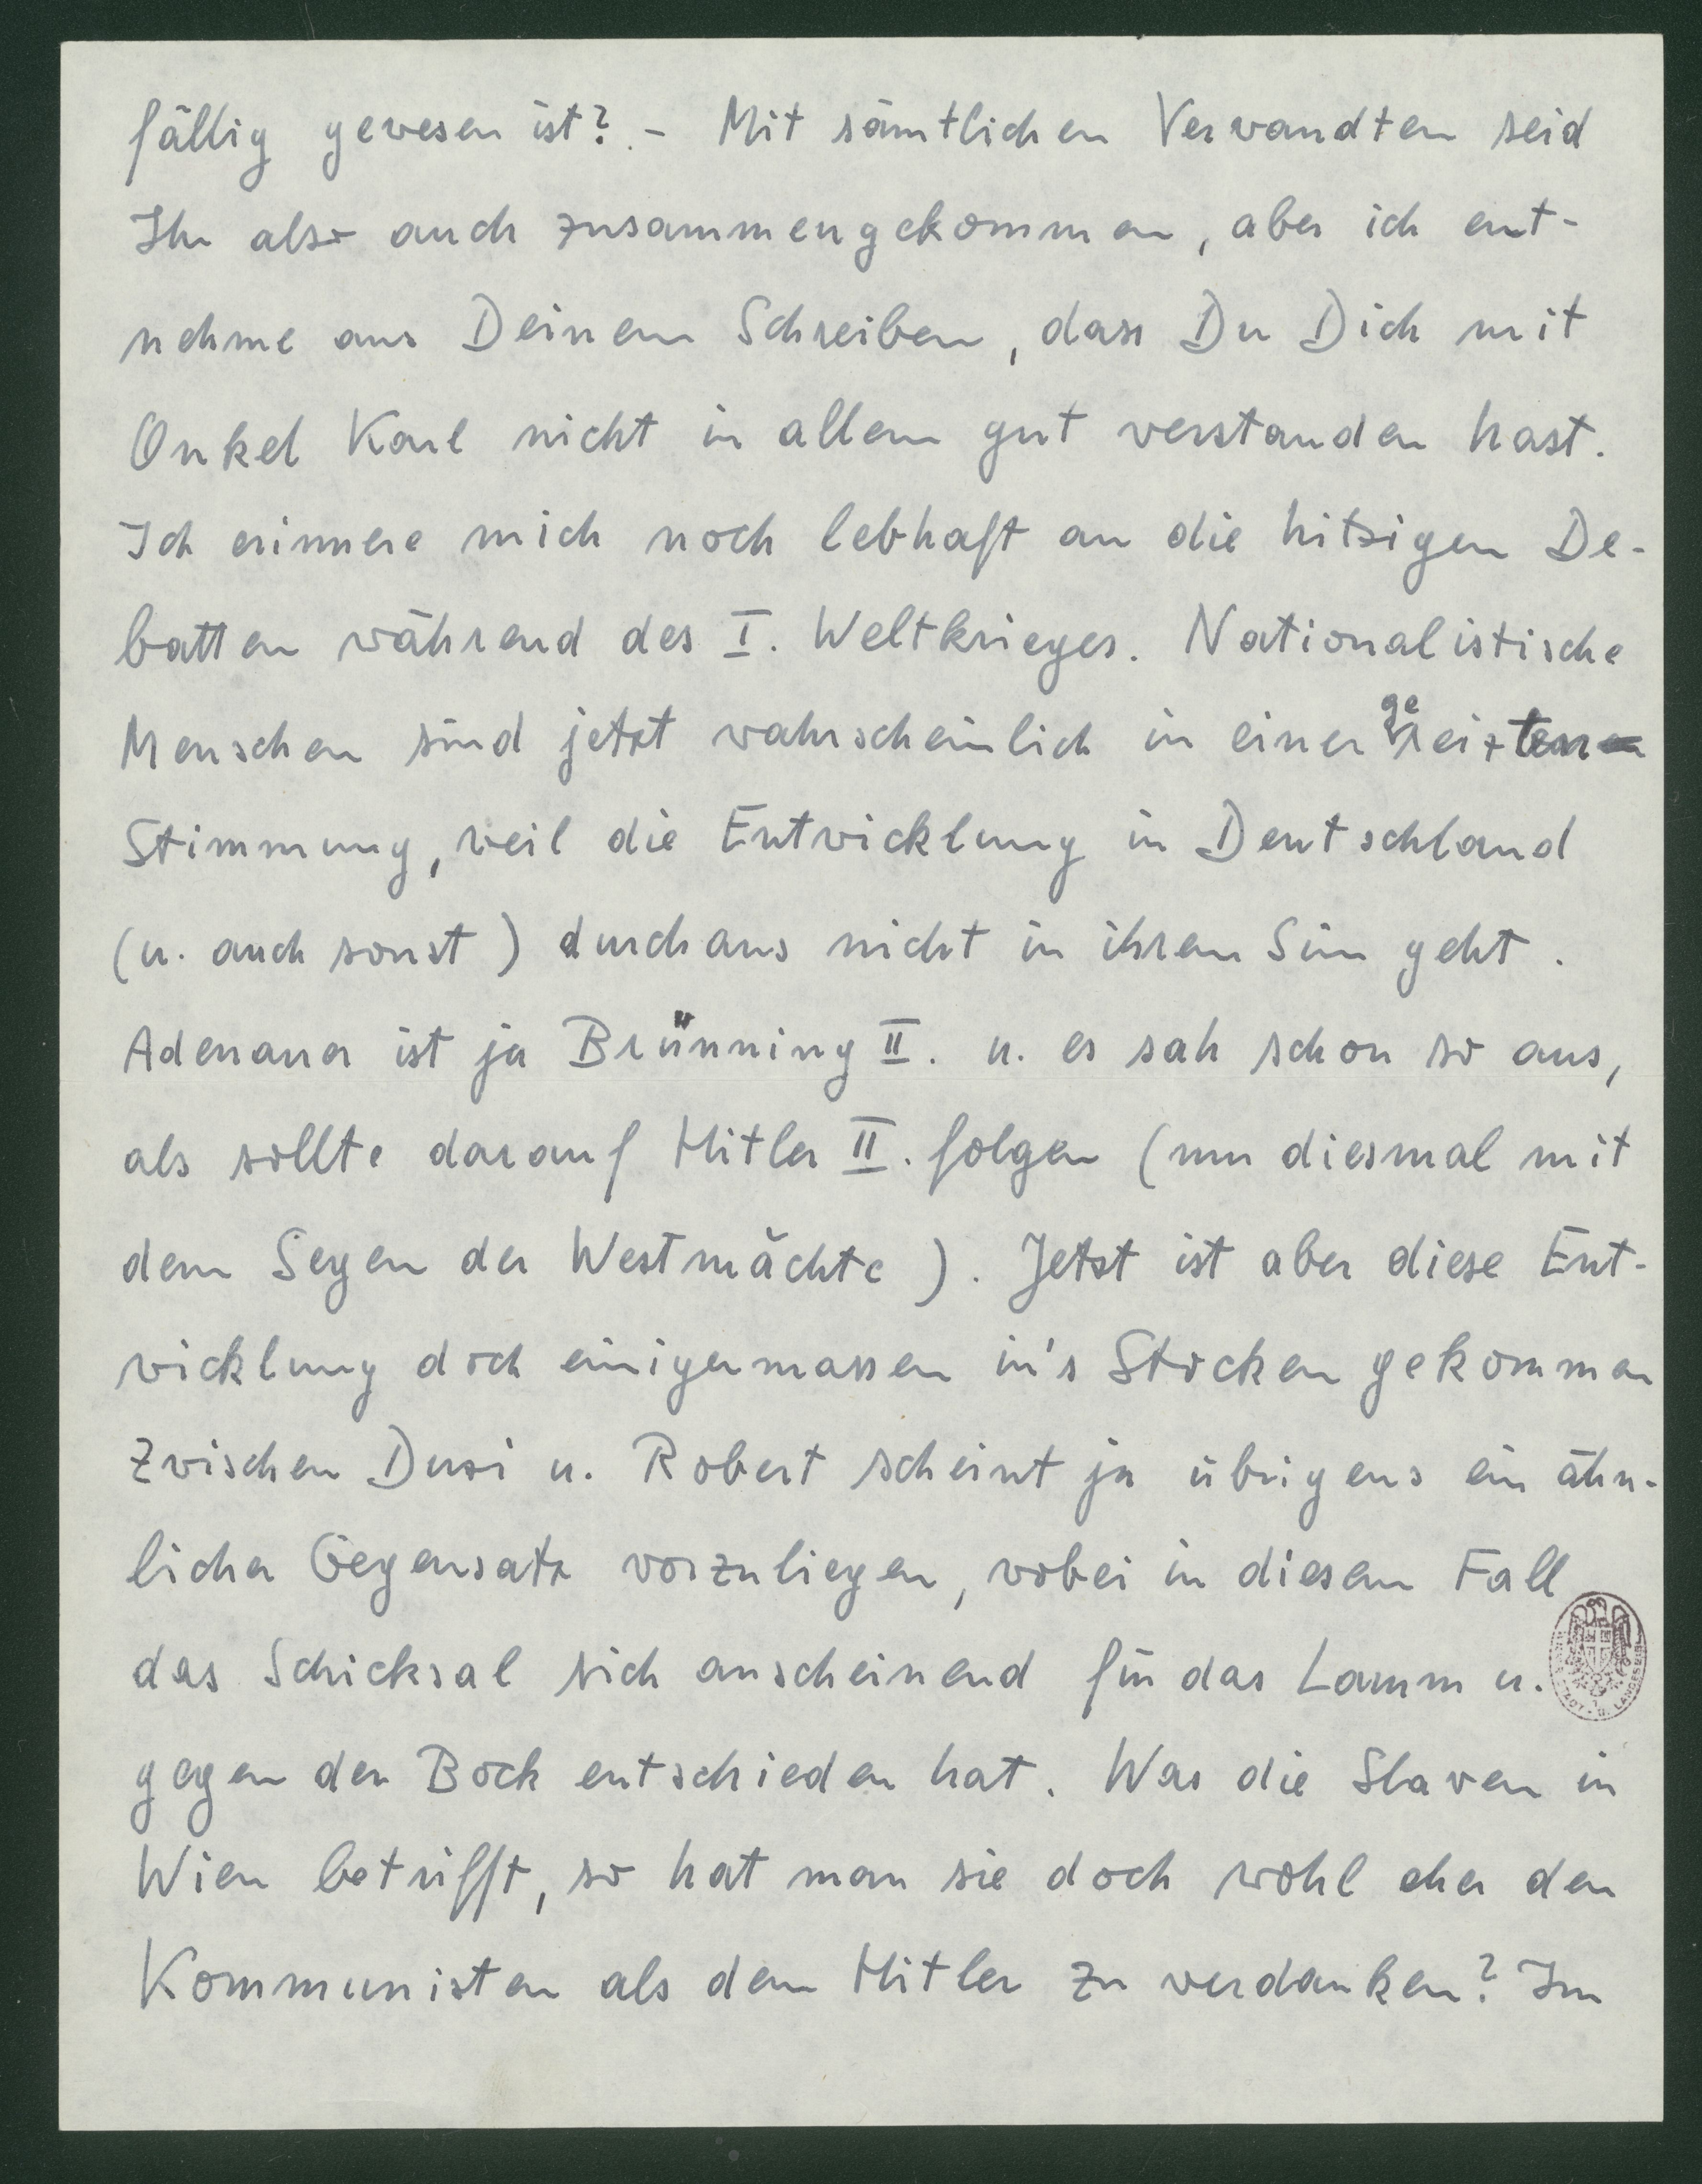 fällig gewesen ist? - Mit sämtlichen Verwandten seid
Ihr also auch zusammengekommen, aber ich ent-
nehme aus Deinem Schreiben, dass Du Dich mit
Onkel Karl nicht in allem gut verstanden hast.
Ich erinnere mich noch lebhaft an die hitzigen De-
batten während des I. Weltkrieges. Nationalistische
Menschen sind jetzt wahrscheinlich in einer gereizten
Stimmung, weil die Entwicklung in Deutschland
(u. auch sonst) durchaus nicht in ihrem Sinn geht.
Adenauer ist ja Brünning II. u. es sah schon so aus,
als sollte darauf Hitler II. folgen (nun diesmal mit
dem Segen der Westmächte). Jetzt ist aber diese Ent-
wicklung doch einigermassen in's Stocken gekommen
Zwischen Dusi u. Robert scheint ja übrigens ein ähn-
licher Gegensatz vorzuliegen, wobei in diesem Fall
das Schicksal sich anscheinend für das Lamm u.
gegen den Bock entschieden hat. Was die Slaven in
Wien betrifft, so hat man sie doch wohl eher den
Kommunisten als dem Hitler zu verdanken? Im